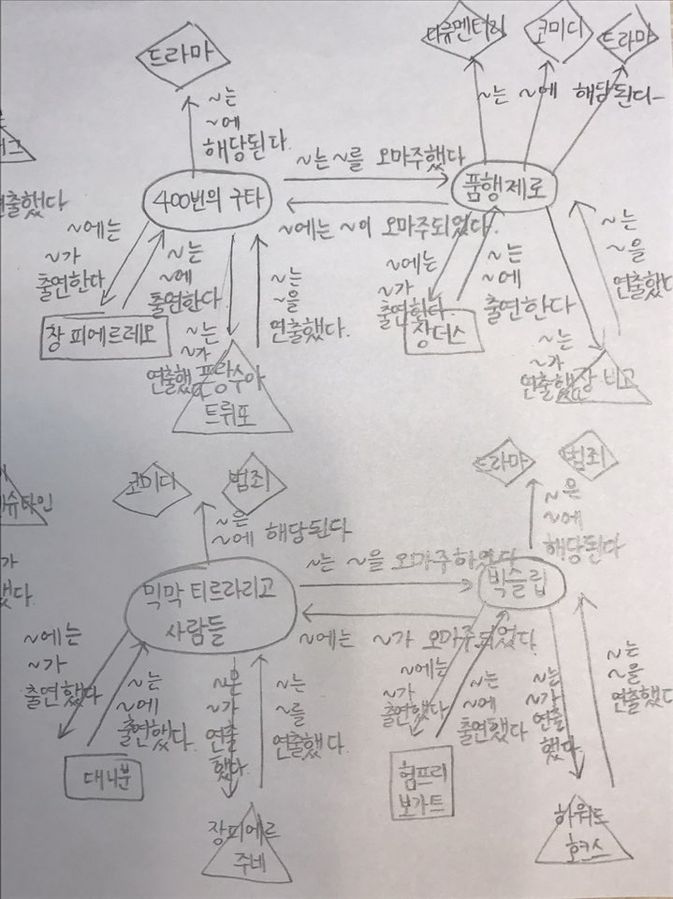 드라마
다큐멘터리
코미디
드라마
~는
~에
해당된다.
~는 ~에 해당된다
~는 ~를 오마주했다
연출했다
400번의 구타
품행제로
~에는 ~이 오마주되었다.
~에는
~가
출연한다
~는
~에
출연한다
~는
~가
연출했
~는
~을
연출했다.
~에는
~가
출연한다.
~는
~에
출연한다
~는
~가
연출했
~는
~을
연출했다
장 피에르레오
프랑수아
트뤼포
장더스
장 비고
코미디
범죄
드라마
범죄
슈타인
~은
~에 해당된다
~은
~에
해당된다
~는 ~을 오마주하였다
믹막 티르라리고
사람들
빅슬립
~에는 ~가 오마주되었다.
~에는
~가
출연했다
~는
~에
출연했다.
~은
~가
연출
했다.
~는
~를
연출했다.
~에는
~가
출연했다
~는
~에
출연했다.
~는
~가
연출
했다.
~는
~을
연출했다
대니분
험프리
보가트
장피에르
주네
하워드
호크스